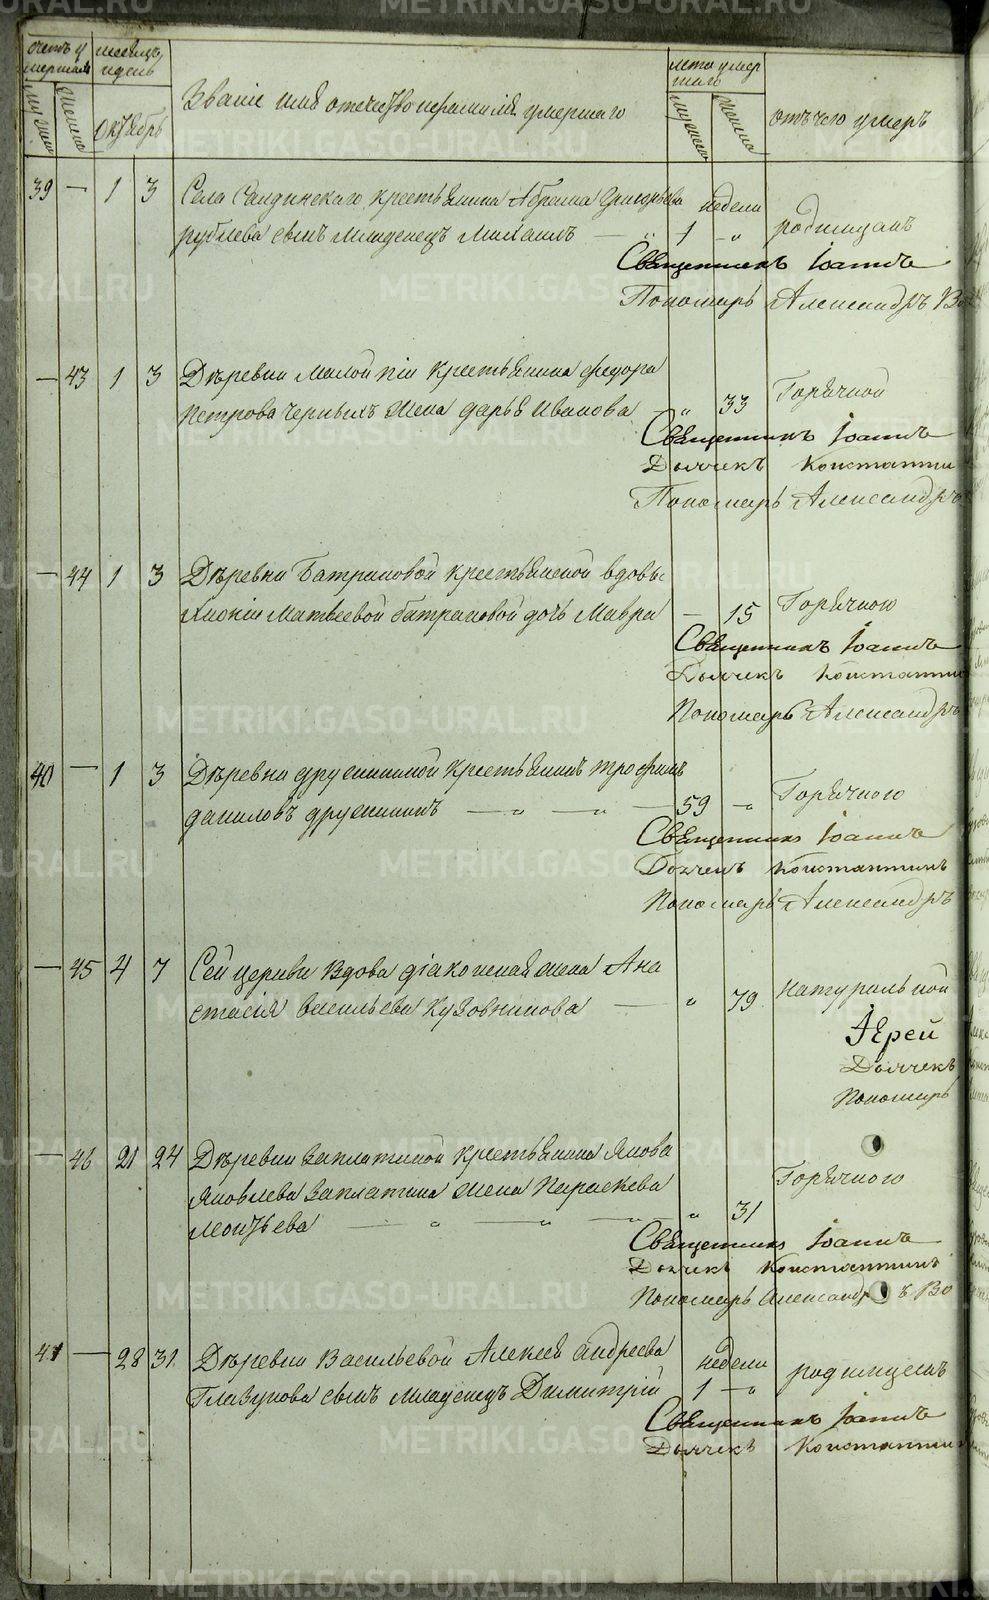 счетъ у
мершихъ
месяцъ
и день
Октябрь
Званіе имя отечество и фамилія умершаго
лета умер
шаго
отъ чего умеръ
39 — 1 3 Села крестьянина Абрама Григорьева недели
Рублева сынъ младенецъ Михаилъ — „ 1 — „ родимцамъ
Священникъ Іоаннъ
Пономарь Александръ
— 43 1 3 Дѣревни Малой крестьянина Федора
Петрова Черныхъ жена Дарья Иванова — „ 33 Горячкой
Священникъ Іоаннъ
Дьячекъ Константи
Пономарь Александръ
— 44 1 3 Дѣревни Батраковой крестьянской вдовы
Хионіи Матвеевой Батраковой дочь Мавра — 15 Горячкою
Священникъ Іоаннъ
Дьячекъ Константи
Пономарь Александръ
40 — 1 3 Дѣревни Дружининой крестьянинъ Трофимъ
Даниловъ Дружининъ — „ — „ — 59 — „ Горячкою
Священникъ Іоаннъ
Дьячекъ Константинъ
Пономарь Александръ
— 45 4 7 Сей церкви вдова діаконская жена Ана
стасія Васильева Кузовникова — „ 79 натуральной
Іерей
Дьячекъ
Пономарь
— 46 21 24 Дѣревни Заплатиной крестьянина Якова
Яковлева Заплатина жена Параскева Горячкою
Леонтьева — „ — „ — „ 31
Священникъ Іоаннъ
Дьячекъ Константинъ
Пономарь Александръ Во
41 — 28 31 Дѣревни Васильевой Алексея Андреева недели
Глазунова сынъ младенецъ Димитрій 1 — „ родимцемъ
Священникъ Іоаннъ
Дьячекъ Константин
METRIKI.GASO-URAL.RU